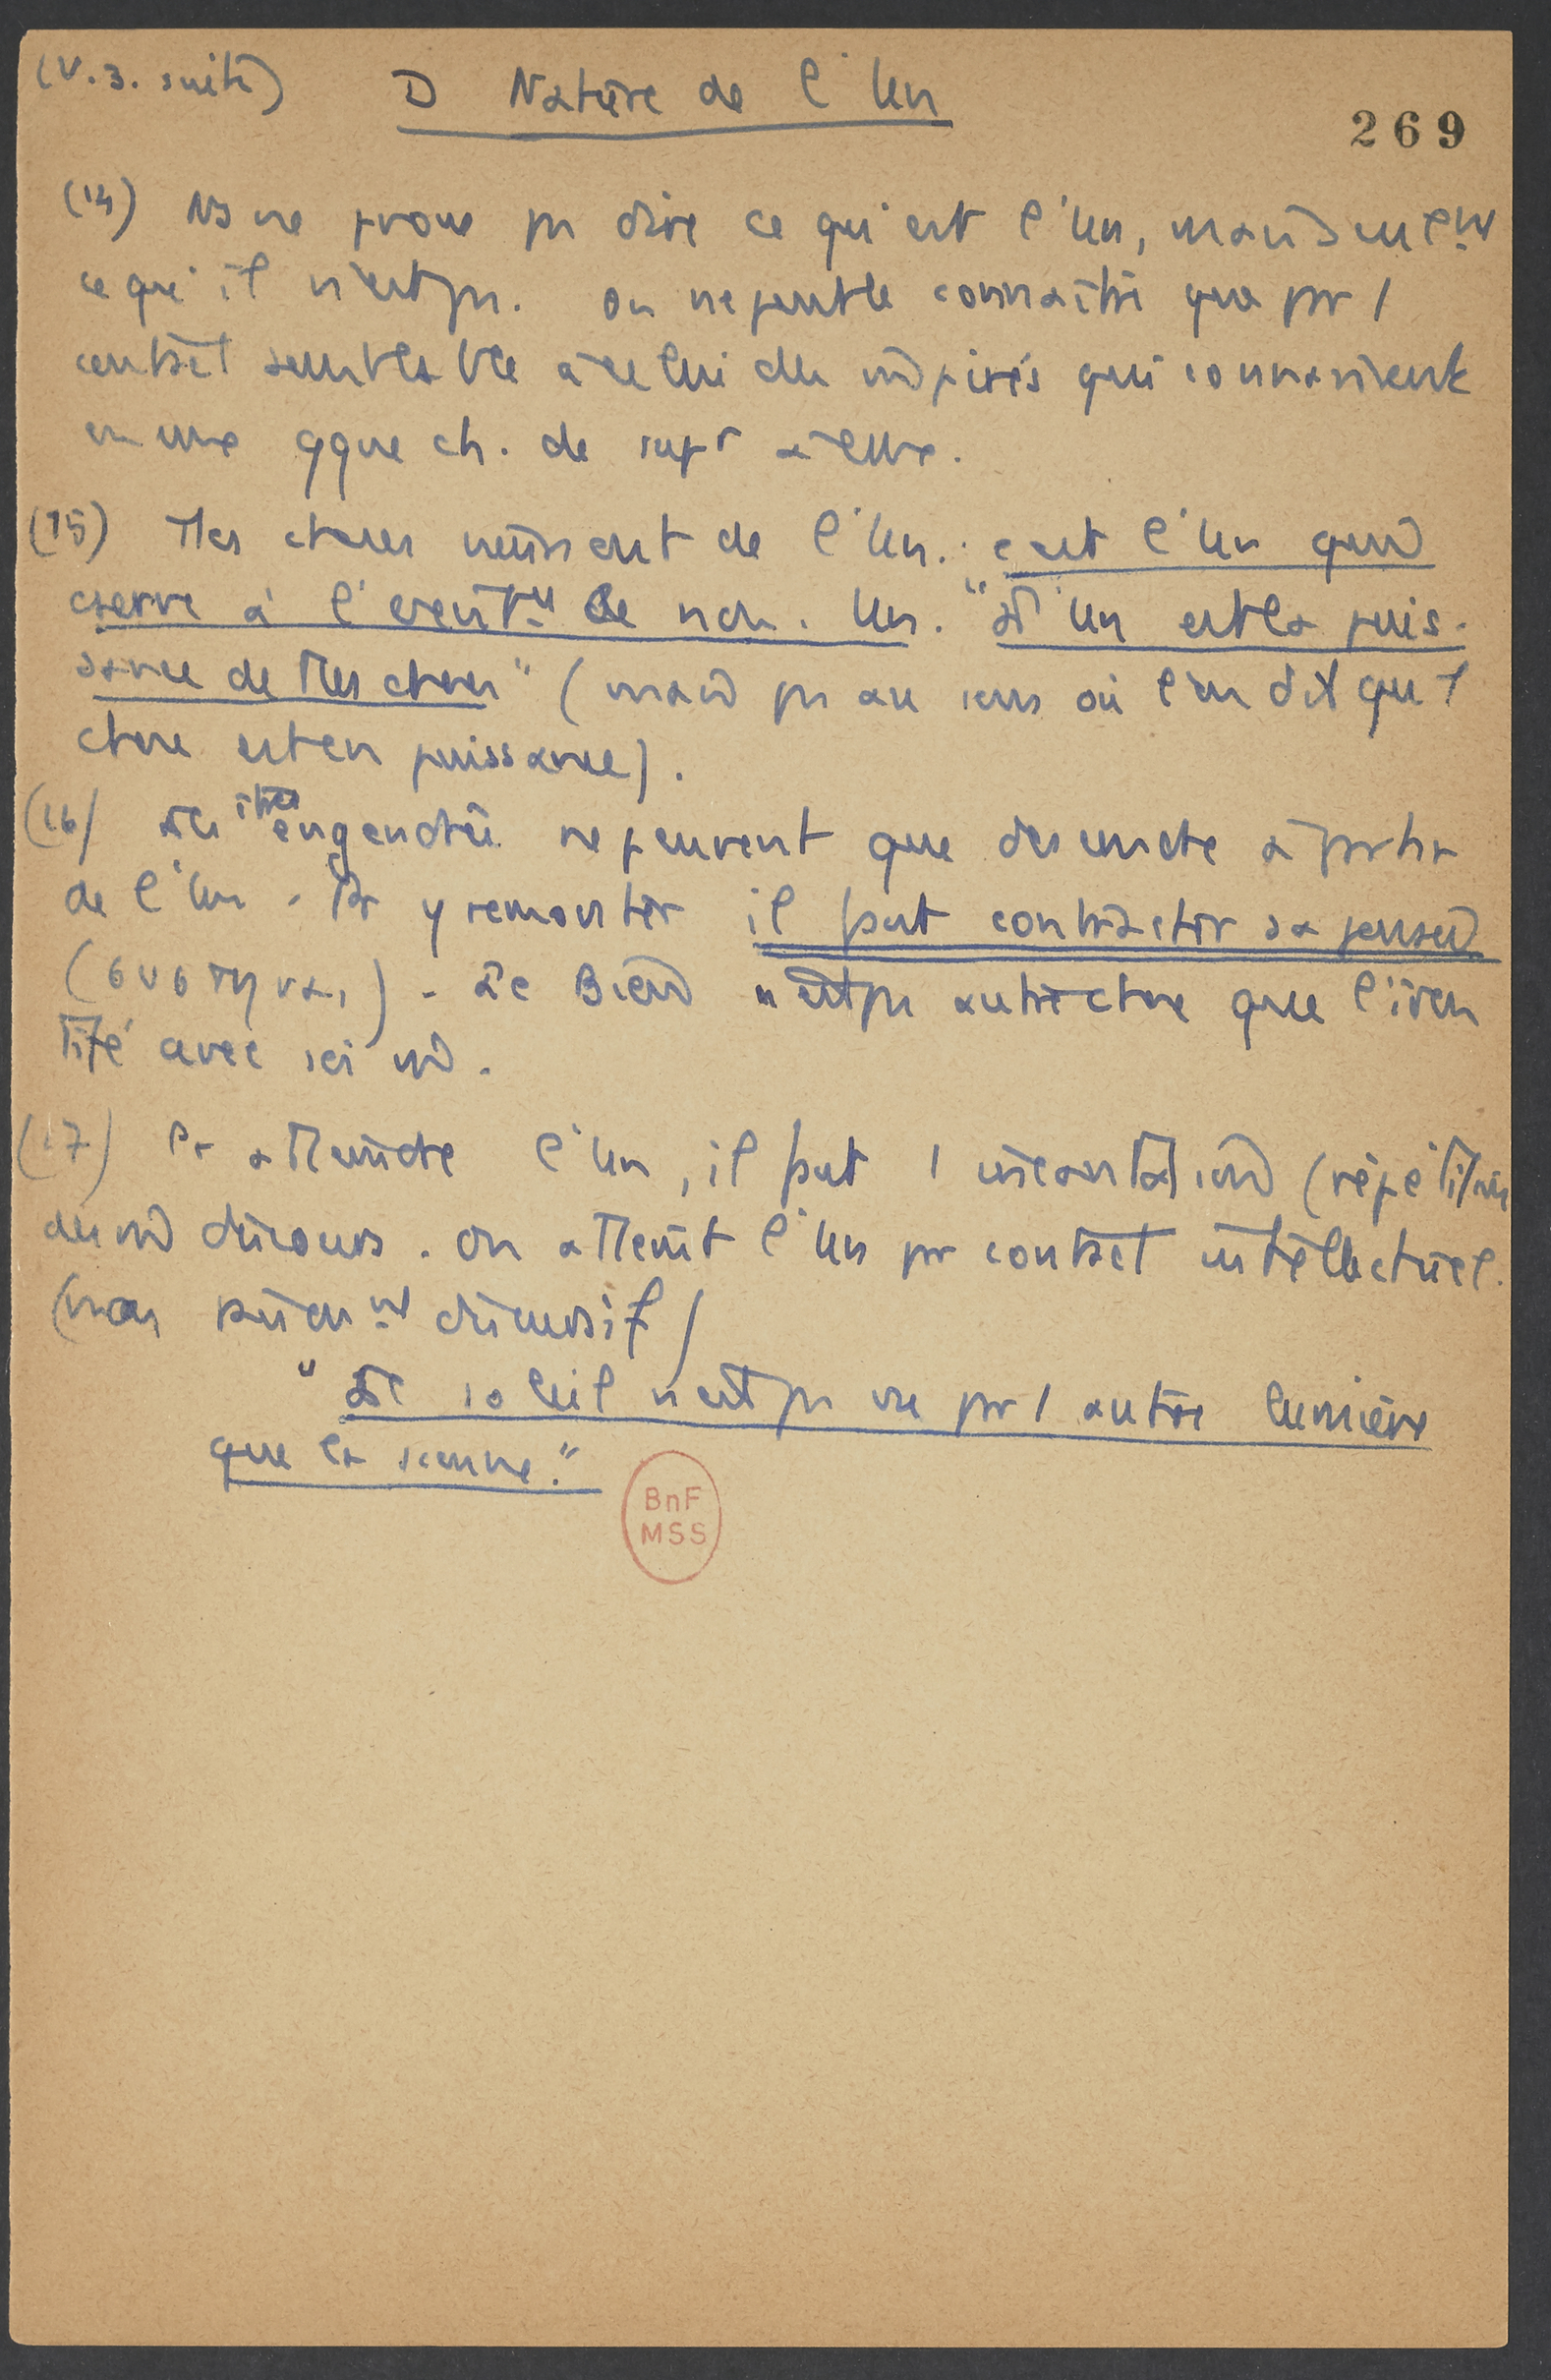 (V.3. suite) D Nature de l'Un
269
(14) Ns ne pvons pas dire ce qu'est l'Un, mais seulemt
ce qu'il n'est pas. On ne peut le connaître que par 1
contact semblable à celui des inspirés qui connaissent
en eux qque ch. de supr à eux.
(15) Ttes choses naissent de l'Un. : c'est l'Un qui
cserve à l' de non. Un. "L'Un est la puis-
sance de ttes choses" (mais pas au sens où l'on dit qu'1
chose est en puissance).
(16) Les êtres engendrés ne peuvent que descendre à partir
de l'Un. Pr y remonter il faut contracter sa pensée
(συστηναι). Le Bien n'est pas autre chose que l'iden
tité avec soi m.
(17) Pr atteindre l'Un, il faut 1 incantation (répétition
du m discours. On atteint l'Un par contact intellectuel.
(non discursif)
"Le soleil n'est pas vu par 1 autre lumière
que la sienne."
BnF
MSS